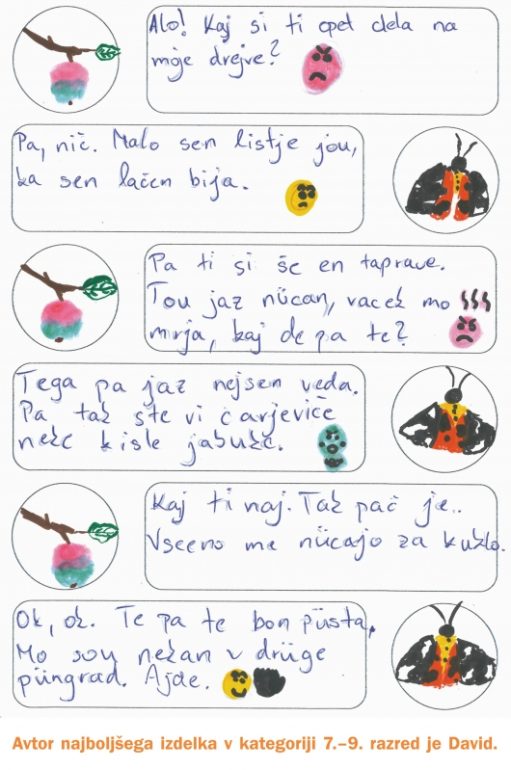 Alo! Kaj si ti opet dela na
moje drejve?
Pa, nič. Malo sen listje jou,
ka sen lačen bija.
Pa ti si še en taprave.
Tou jaz nücan, vaček mo
mrja, kaj de pa te?
Tega pa jaz nejsen veda.
Pa tak ste vi carjeviče
neke kisle jabuke.
Kaj ti naj. Tak pač je..
Vseeno me nücajo za kužlo.
Ok, ok. Te pa te bon püsta,
Mo sou nekan v drüge
püngrad. Ajde.
Avtor najboljšega izdelka v kategoriji 7.–9. razred je David.